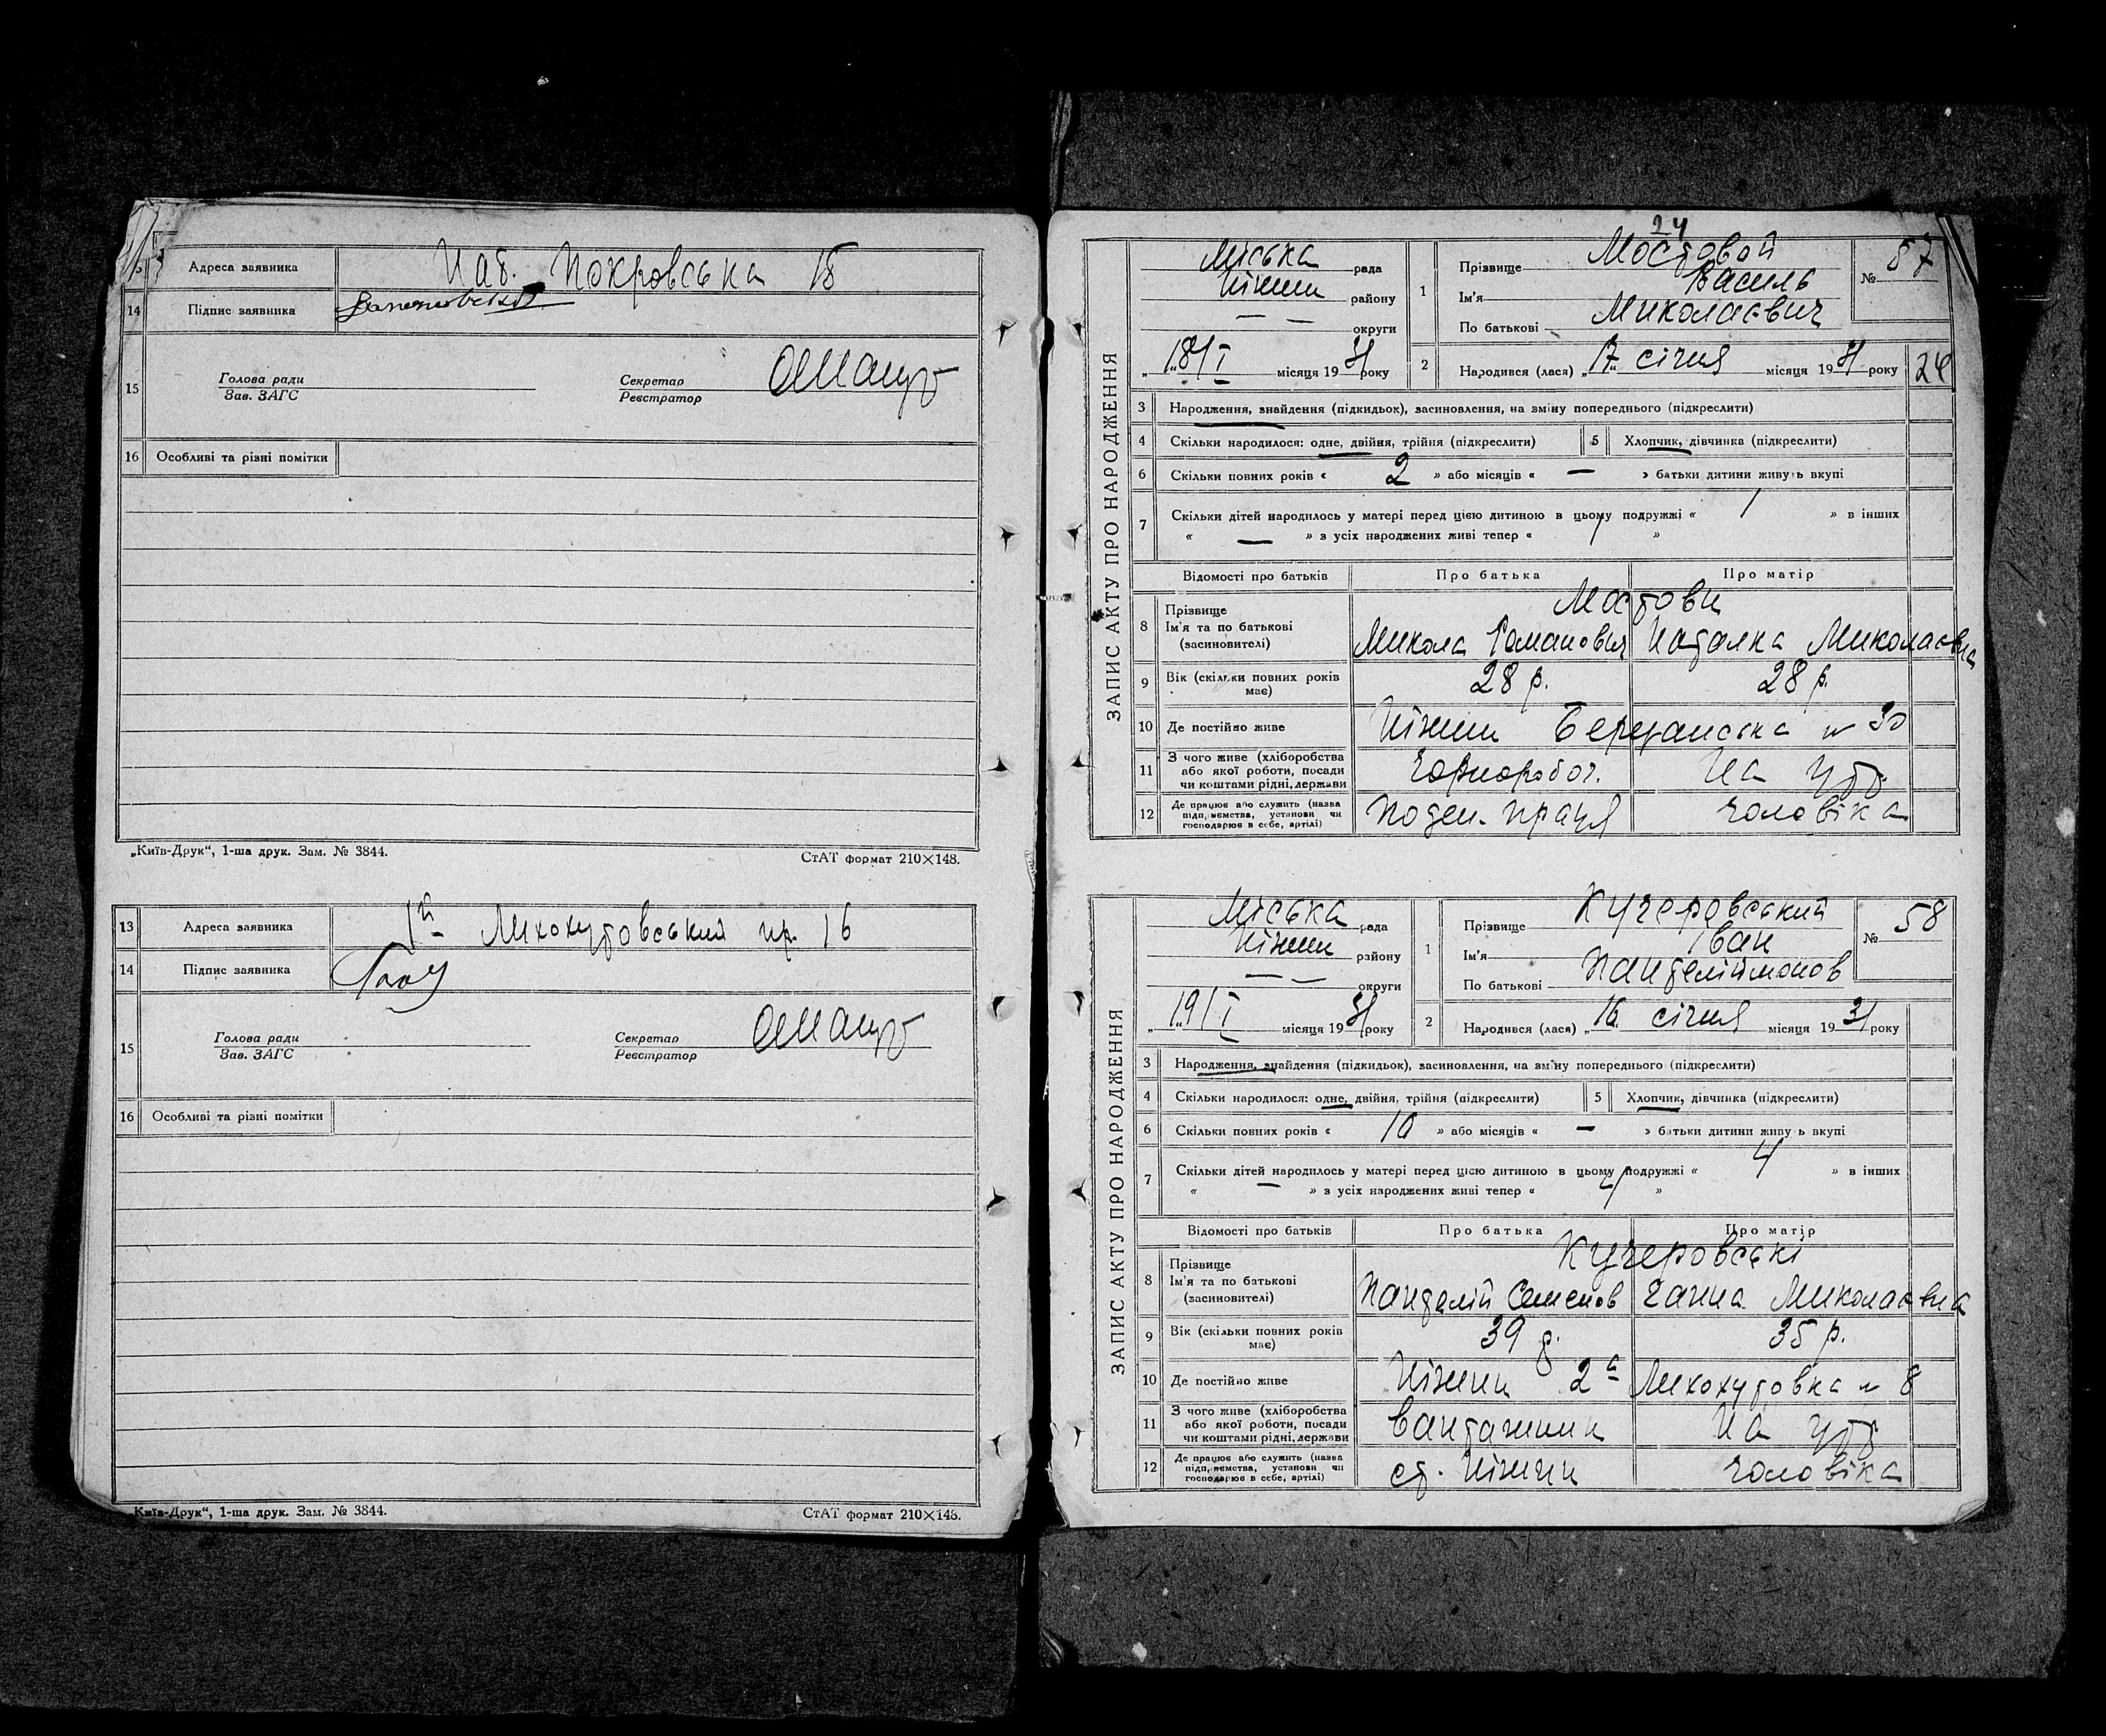 13 Адреса заявника Наб. Покровська 18
14 Підпис заявника
15 Голова ради Зав. ЗАГС Секретар Реєстратор
16 Особливі та різні помітки
„Київ-Друк“, 1-ша друк. Зам. № 3844. СтАТ формат 210×148.
13 Адреса заявника 1й Лихохутовський пр. 16
14 Підпис заявника
15 Голова ради Зав. ЗАГС Секретар Реєстратор
16 Особливі та різні помітки
Київ-Друк“, 1-ша друк. Зам. № 3844. СтАТ формат 210×148.
24
ЗАПИС АКТУ ПРО НАРОДЖЕННЯ
Міська рада
Ніжин району
— — округи
„18/I місяця 1931 року
1 Прізвище Мостовой
Ім'я Василь
По батькові Миколаєвич
№ 57
2 Народився (лася) „17 січня місяця 1931 року 24
3 Народження, знайдення (підкидьок), засиновлення, на зміну попереднього (підкреслити)
4 Скільки народилося: одне, двійня, трійня (підкреслити) 5 Хлопчик, дівчинка (підкреслити)
6 Скільки повних років « 2 » або місяців « — » батьки дитини живуть вкупі
7 Скільки дітей народилось у матері перед цією дитиною в цьому подружжі « 1 » в інших
« — » з усіх народжених живі тепер « 1 »
Відомості про батьків Про батька Про матір
8 Прізвище Мостови
Ім'я та по батькові Микола Романович Наталка Миколаєвна
(засиновителі)
9 Вік (скільки повних років має) 28 р. 28 р.
10 Де постійно живе Ніжин Березанська № 30
11 З чого живе (хліборобства або якої роботи, посади чи коштами рідні, держави Чорнороботч. На утр.
12 Де працює або служить (назва підприємства, установи чи господарює в себе, артілі) Поден. праця чоловіка
ЗАПИС АКТУ ПРО НАРОДЖЕННЯ
Міська рада
Ніжин району
— — округи
„19/I місяця 1931 року
1 Прізвище Кучеровський
Ім'я Іван
По батькові Пантеліймонов
№ 58
2 Народився (лася) „16 січня місяця 1931 року
3 Народження, знайдення (підкидьок), засиновлення, на зміну попереднього (підкреслити)
4 Скільки народилося: одне, двійня, трійня (підкреслити) 5 Хлопчик, дівчинка (підкреслити)
6 Скільки повних років « 10 » або місяців « — » батьки дитини живу ь вкупі
7 Скільки дітей народилось у матері перед цією дитиною в цьому подружжі « 4 » в інших
« — » з усіх народжених живі тепер « 4 »
Відомості про батьків Про батька Про матір
8 Прізвище Кучеровські
Ім'я та по батькові Пантелій Семенов Ганна Миколаєвна
(засиновителі)
9 Вік (скільки повних років має) 39 р. 35 р.
10 Де постійно живе Ніжин 2а Лихохутовка № 8
11 З чого живе (хліборобства або якої роботи, посади чи коштами рідні, держави вантажник На утр.
12 Де працює або служить (назва підприємства, установи чи господарює в себе, артілі) ст. Ніжин чоловіка